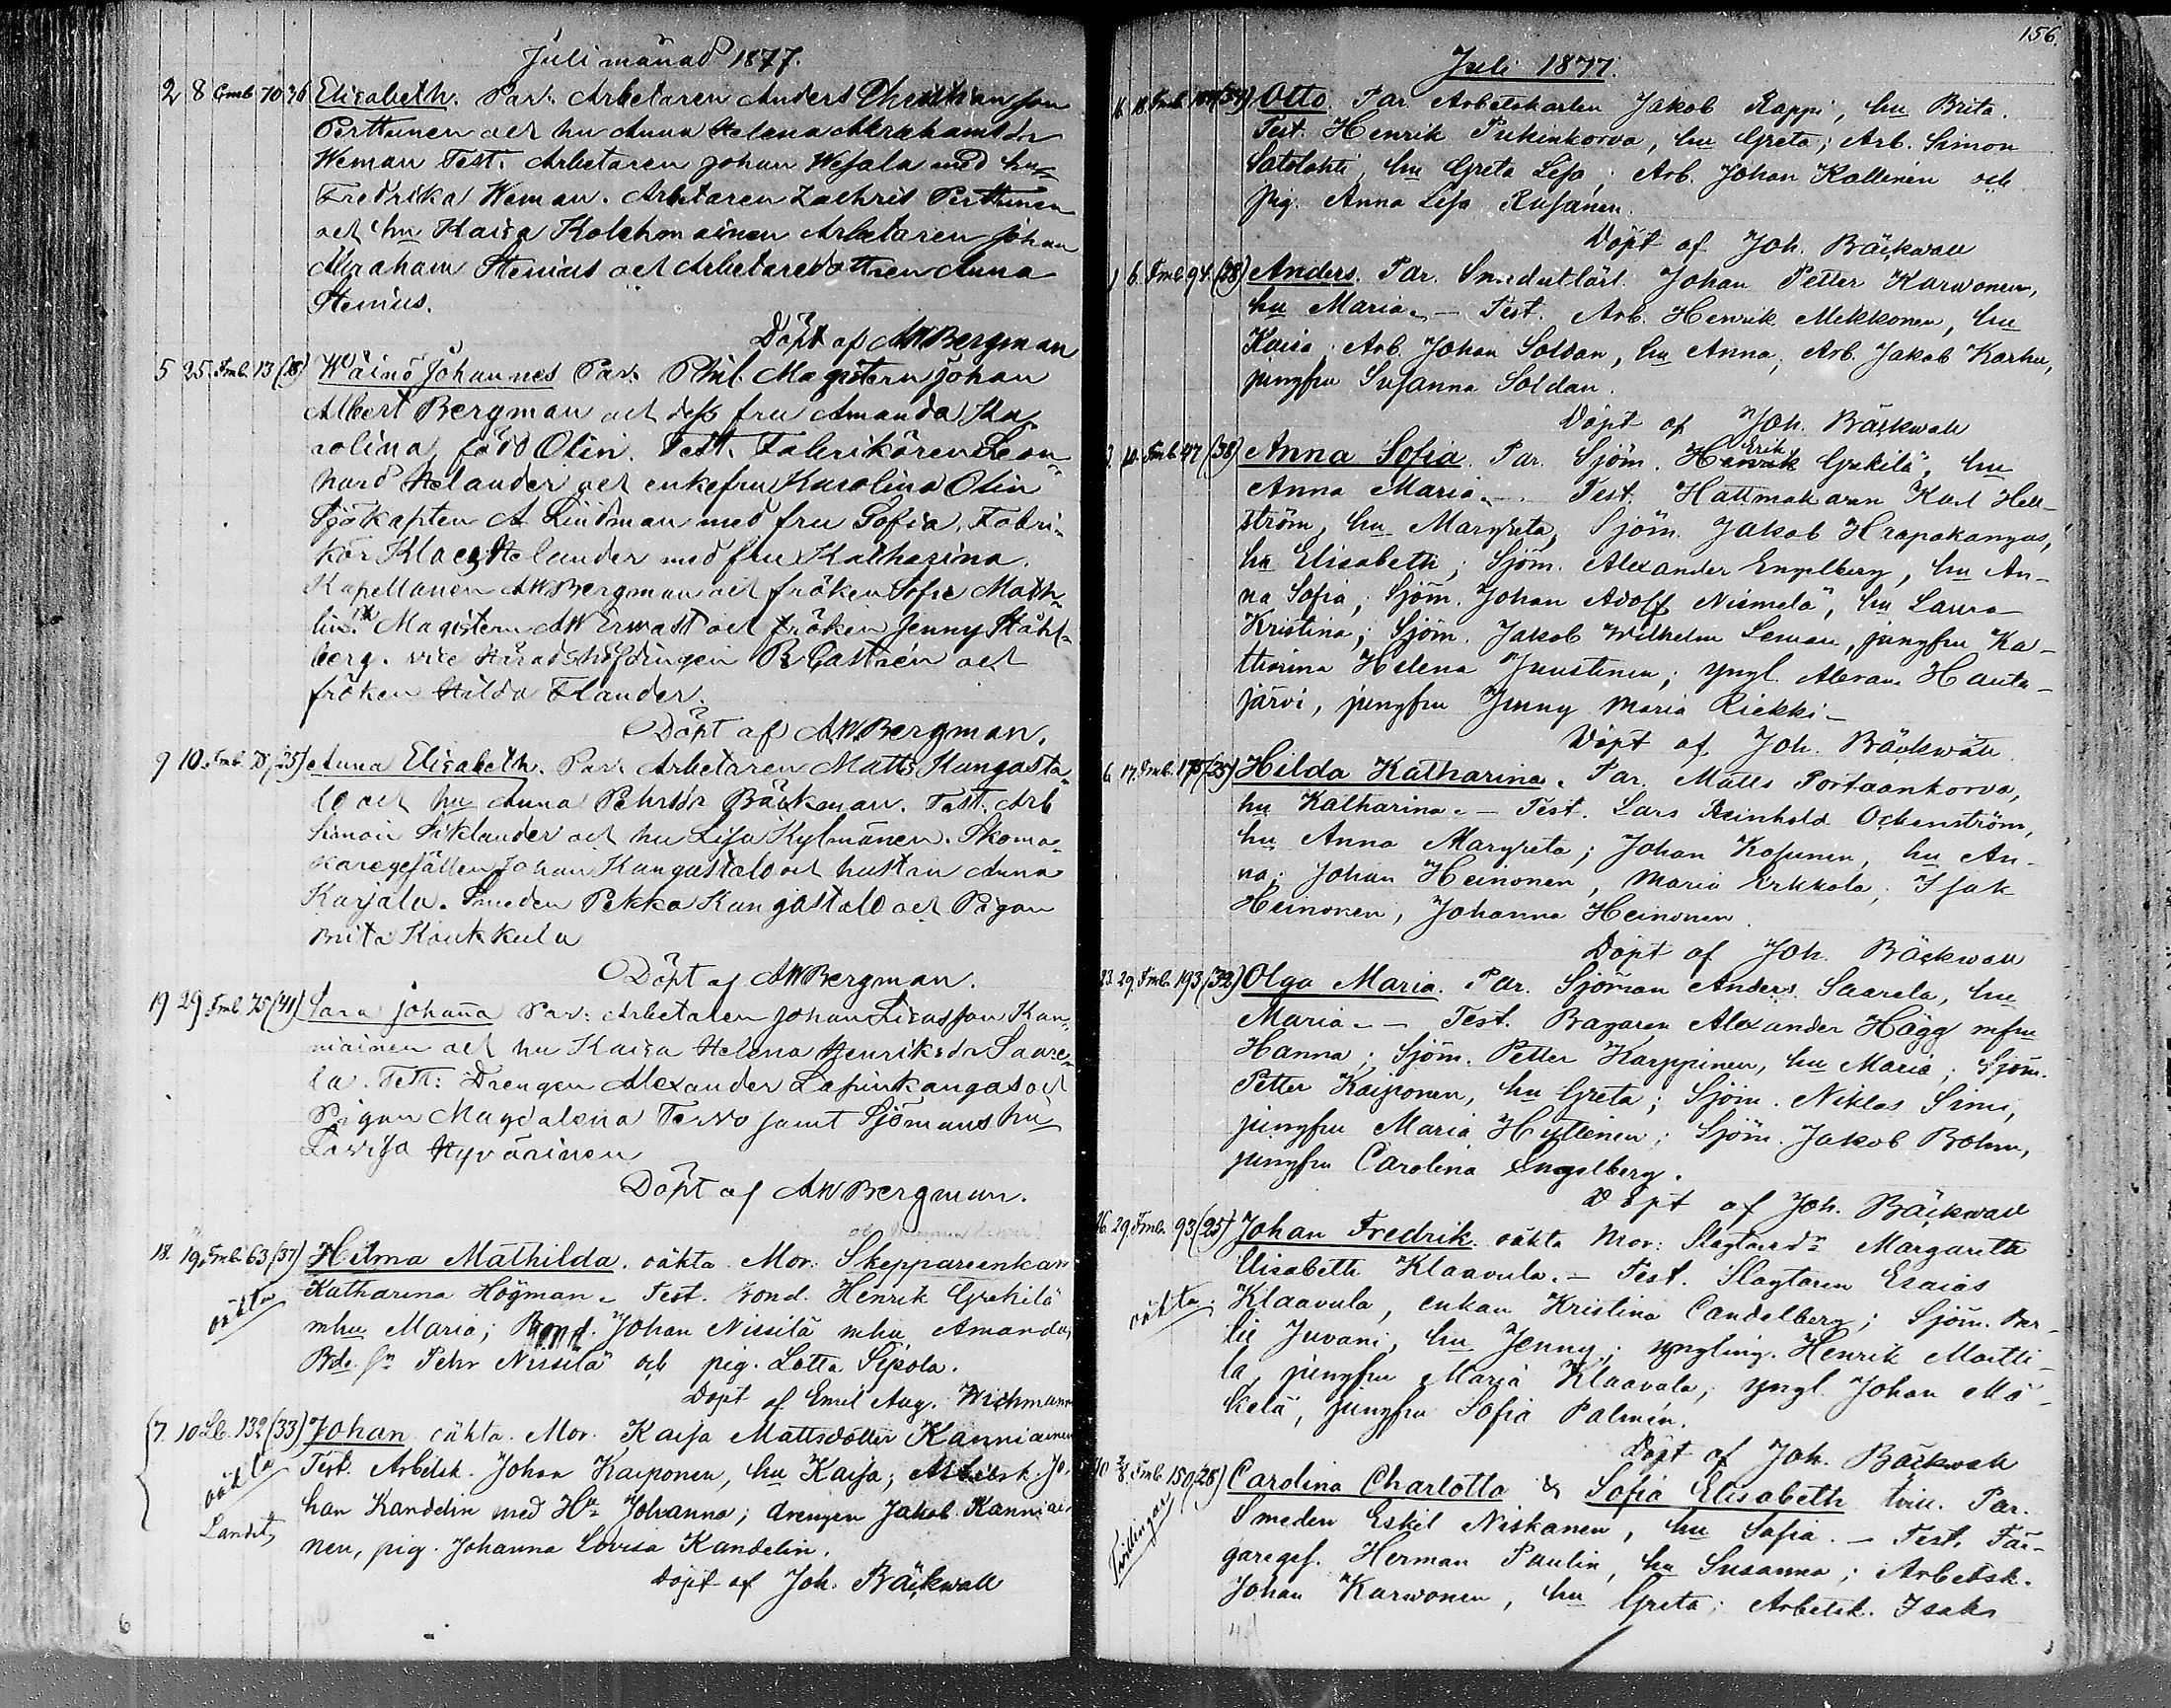 Juli månad 1877.
2 8 Fmb. 70 36 Elisabeth. Par: Arbetaren Anders
Perttunen och hu Anna Helena Abrahamsdr
Weman Test. Arbetaren Johan Wesala med hu
Fredrika Weman. Arbetaren Zachris Perttunen
och hu Kaisa Kolehmainen Arbetaren Johan
Abraham Stenius och Arbetaredottren Anna
Stenius.
Döpt af AWBergman
5 25 Fmb. 13 (28) Wäinö Johannes Par. Phil. Magistern Johan
Albert Bergman och dess fru Amanda Ka-
rolina, född Olin. Test. Fabrikören Leon-
hard Helander och enkefru Karolina Olin
Sjökapten A Lindman med fru Sofia. Fabri-
kör Klaes Helander med fru Katharina.
Kapellanen AWBergman och fröken Sofie Math-
lin. Magistern AW Ervast och fröken Jenny Ståhl-
berg. vice Häradshöfdingen R Castrén och
fröken Hilda Elander.
Döpt af AWBergman.
9 10 Fmb. 70 (35) Anna Elisabeth. Par. Arbetaren Matts Kangasta-
lo och hu Anna Pehrsdr Bäckman. Test. Arb
Simon Siklander och hu Lisa Kylmänen. Skoma-
karegesällen Johan Kangastalo och hustru Anna
Karjala. Smeden Pekka Kangastalo och Pigan
Brita Koukkula
Döpt af AWBergman.
19 29 Fmb. 75 (41) Sara Johana Par: Arbetaren Johan Lucasson Kan-
niainen och hu Kaisa Helena Henriksdr Saare-
la. Test: Drengen Alexander Lapinkangas och
Pigan Magdalena Tervo samt Sjömans hu
Lovisa Hyvärinen
Döpt af AWBergman.
18. 19. Fmb. 63 (37) Hilma Mathilda. oäkta. Mor: Skeppareenkan
oäkta Katharina Högman. Test. Bond. Henrik Grekilä
mhu Maria; Bond. Johan Nissilä mhu Amanda,
Bde. sn Pehr Nissilä och pig. Lotta Sipola.
Döpt af Emil Aug. Wichmann
7. 10 Lb. 132 (33) Johan oäkta. Mor. Kaisa Mattsdotter Kanniainen
oäkta Test. Arbetsk. Johan Kaiponen, hu Kaisa; Arbetsk. Jo-
Landst han Kandelin med Hu Johanna; drengen Jakob Kanniai-
nen, pig. Johanna Lovisa Kandelin.
Döpt af Joh. Bäckwall
6
156.
Juli 1877.
Otto. Par. Arbetskarlen Jakob Rappi, hu Brita.
Test. Henrik Pukinkorva, hu Greta; Arb. Simon
Satolahti, hu Greta Lisa; Arb. Johan Kallinen och
pig. Anna Lisa Rusanen.
Döpt af Joh. Bäckwall
1 6. Fmb. 94. (28) Anders. Par. Smedutlärl. Johan Petter Karwonen,
hu Maria. — Test. Arb. Henrik Mikkonen, hu
Kaisa, Arb. Johan Soldan, hu Anna, Arb. Jakob Karhu,
jungfru Susanna Soldan.
Döpt af Joh. Bäckwall
Fmb. 47 (38) Anna Sofia. Par. Sjöm. Henrik Erik Grekilä, hu
Anna Maria. — Test. Hattmakaren Karl Hell-
ström, hu Margreta, Sjöm. Jakob Haapakangas,
hu Elisabeth; Sjöm. Alexander Engelberg, hu An-
na Sofia; Sjöm. Johan Adolf Niemelä, hu Laura
Kristina; Sjöm. Jakob Wilhelm Leman, jungfru Ka-
tharina Helena Juustinen; yngl. Abram Hauta-
järvi, jungfru Jenny Maria Riekki —
Döpt af Joh. Bäckwall
6. 17. Fmb. 175 (35) Hilda Katharina. Par. Matts Portaankorva,
hu Katharina. — Test. Lars Reinhold Ockenström,
hu Anna Margreta; Johan Kosunen, hu An-
na; Johan Heinonen, Maria Erkkola; Isak
Heinonen, Johanna Heinonen
Döpt af Joh. Bäckwall
23. 29. Fmb. 193 (32) Olga Maria. Par. Sjöman Anders Saarela, hu
Maria. — Test. Bagaren Alexander Högg mfru
Hanna; Sjöm. Petter Karppinen, hu Maria; Sjöm.
Petter Kaiponen, hu Greta; Sjöm. Niklas Simi,
jungfru Maria Hyttinen; Sjöm. Jakob Bohm,
jungfru Carolina Engelberg.
Döpt af Joh. Bäckwall
26. 29. Fmb. 93 (25) Johan Fredrik. oäkta Mor: Slagtaredr Margareth
Elisabeth Klaavula. — Test. Slagtaren Esaias
oäkta Klaavula, enkan Kristina Candelberg; Sjöm. Ber-
til Juvani, hu Jenny; yngling. Henrik Martti-
la, jungfru Maria Klaavula, yngl. Johan Mä-
kelä, jungfru Sofia Palmén.
Döpt af Joh. Bäckwall
Fmb. 150 (28) Carolina Charlotta & Sofia Elisabeth tvill. Par.
Tvillingar Smeden Eskil Niskanen, hu Sofia. — Test. Fär-
gareges. Herman Paulin, hu Susanna; Arbetsk.
Johan Karwonen, hu Greta; Arbetsk. Isaks